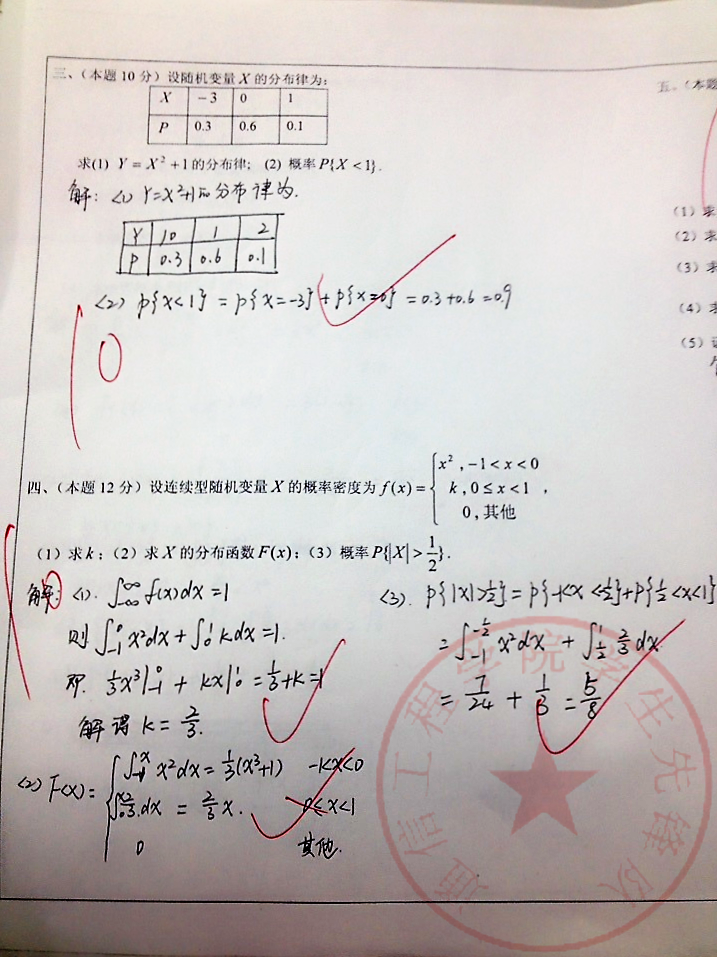 三、(本题10分)设随机变量X的分布律为:
X -3 0 1
P 0.3 0.6 0.1
求(1) Y=X²+1的分布律; (2) 概率P{X<1}.
解: <1> Y=X²+1的分布律为.
Y 10 1 2
P 0.3 0.6 0.1
<2> P{X<1} = P{X=-3} + P{X=0} = 0.3+0.6=0.9
0
四、(本题12分)设连续型随机变量X的概率密度为f(x)={x²,-1<x<0
k,0≤x<1,
0,其他
(1)求k;(2)求X的分布函数F(x);(3)概率P{|X|>1/2}.
解: <1>. ∫_{-∞}^{∞} f(x)dx=1
则 ∫_{-1}^{0} x²dx + ∫_{0}^{1} kdx=1.
即. 1/3x³|_{-1}^{0} + kx|_{0}^{1} = 1/3+k=1
解得 k=2/3.
<2> F(x)={∫_{-1}^{x} x²dx=1/3(x³+1) -1<x<0
∫_{0}^{x} 2/3.dx = 2/3x. 0≤x<1
0 其他.
<3>. P{|X|>1/2}=P{-1<x<-1/2}+P{1/2<x<1}
=∫_{-1}^{-1/2} x²dx + ∫_{1/2}^{1} 2/3dx.
= 7/24 + 1/3 = 5/8
五、(本题
(1)求
(2)求
(3)求
(4)求
(5)